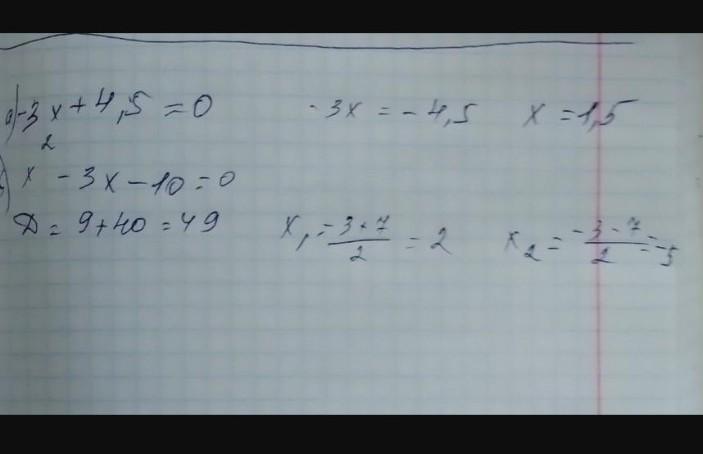 а) -3x + 4,5 = 0 -3x = -4,5 x = 1,5
x² - 3x - 10 = 0
D = 9 + 40 = 49 x₁ = (-3+7)/2 = 2 x₂ = (-3-7)/2 = -5